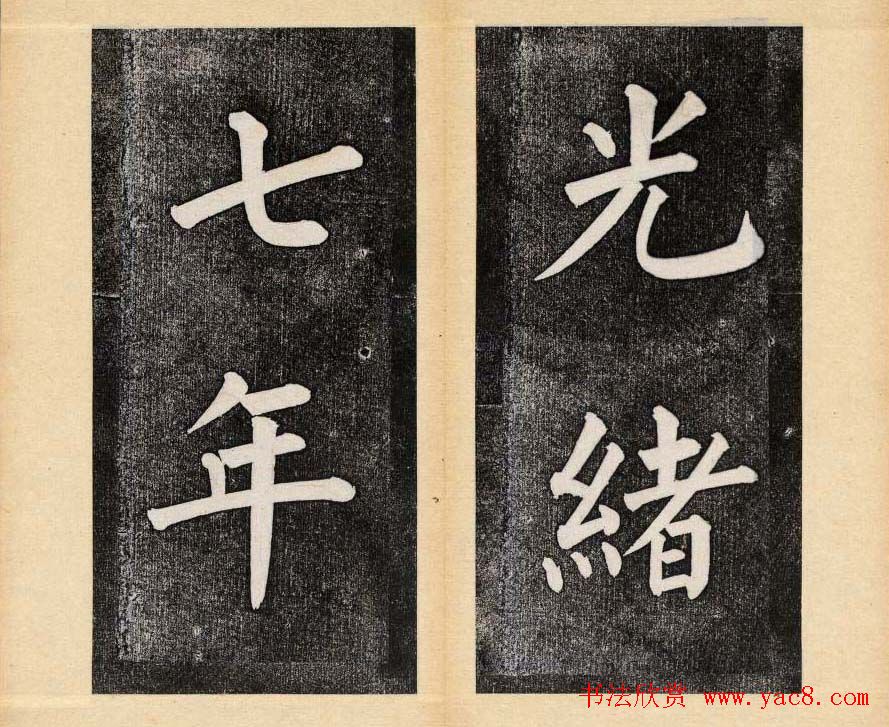 光緒
七年
书法欣赏 www.yac8.com